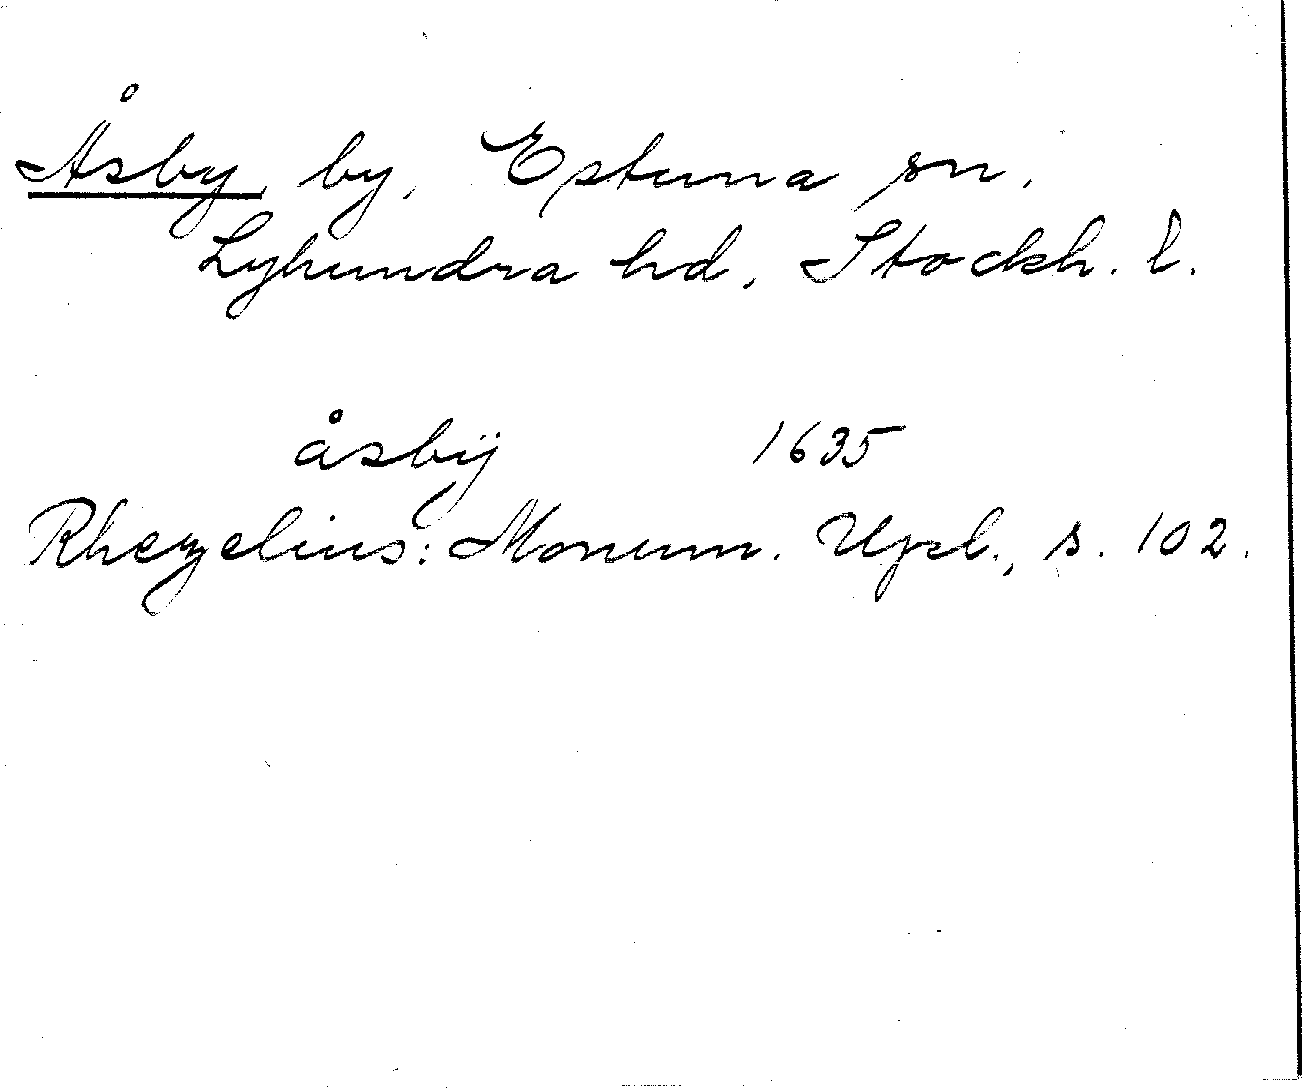 Åsby, by, Estuna sn,
Lyhundra hd, Stockh. l.
åsbÿ 1635
Rhezelius: Monum. Upl., s. 102.